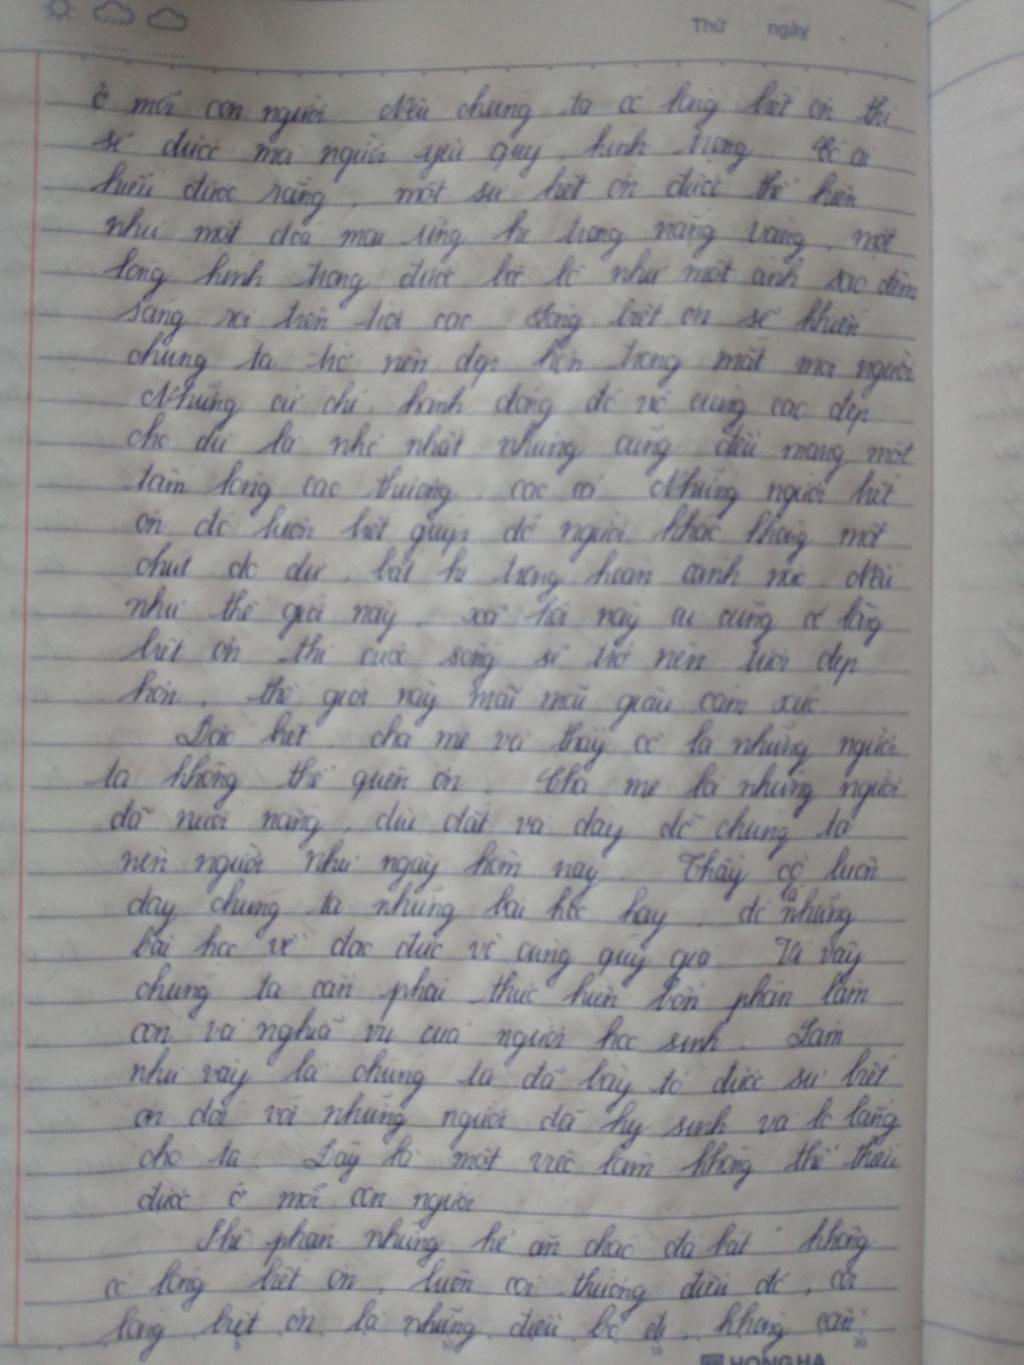 Thứ ngày
ở mỗi con người. Nếu chúng ta có lòng biết ơn thì
sẽ được mọi người yêu quý, kính trọng. Có ai
hiểu được rằng, một sự biết ơn được thể hiện
như một đóa mai ửng hé trong nắng vàng, một
lòng kính trọng được bộc lộ như một ánh sao đêm
sáng rọi trên trời cao. Lòng biết ơn sẽ khiến
chúng ta trở nên đẹp hơn trong mắt mọi người
Những cử chỉ, hành động đó vô cùng cao đẹp
cho dù là nhỏ nhặt nhưng cũng đều mang một
tấm lòng cao thượng, cao cả. Những người biết
ơn đó luôn biết giúp đỡ người khác không một
chút do dự, bất kì trong hoàn cảnh nào. Nếu
như thế giới này, xã hội này ai cũng có lòng
biết ơn thì cuộc sống sẽ trở nên tươi đẹp
hơn, thế giới này mãi mãi giàu cảm xúc.
Đặc biệt, cha mẹ và thầy cô là những người
ta không thể quên ơn. Cha mẹ là những người
đã nuôi nấng, dìu dắt và dạy dỗ chúng ta
nên người như ngày hôm nay. Thầy cô luôn
dạy chúng ta những bài học hay, đó là những
bài học về đạo đức vô cùng quý giá. Vì vậy
chúng ta cần phải thực hiện bổn phận làm
con và nghĩa vụ của người học sinh. Làm
như vậy là chúng ta đã bày tỏ được sự biết
ơn đối với những người đã hy sinh và lo lắng
cho ta. Đây là một việc làm không thể thiếu
được ở mỗi con người
Phê phán những kẻ ăn cháo đá bát không
có lòng biết ơn, luôn coi thường điều đó, coi
lòng biết ơn là những điều bỏ đi, không cần
HONG HA